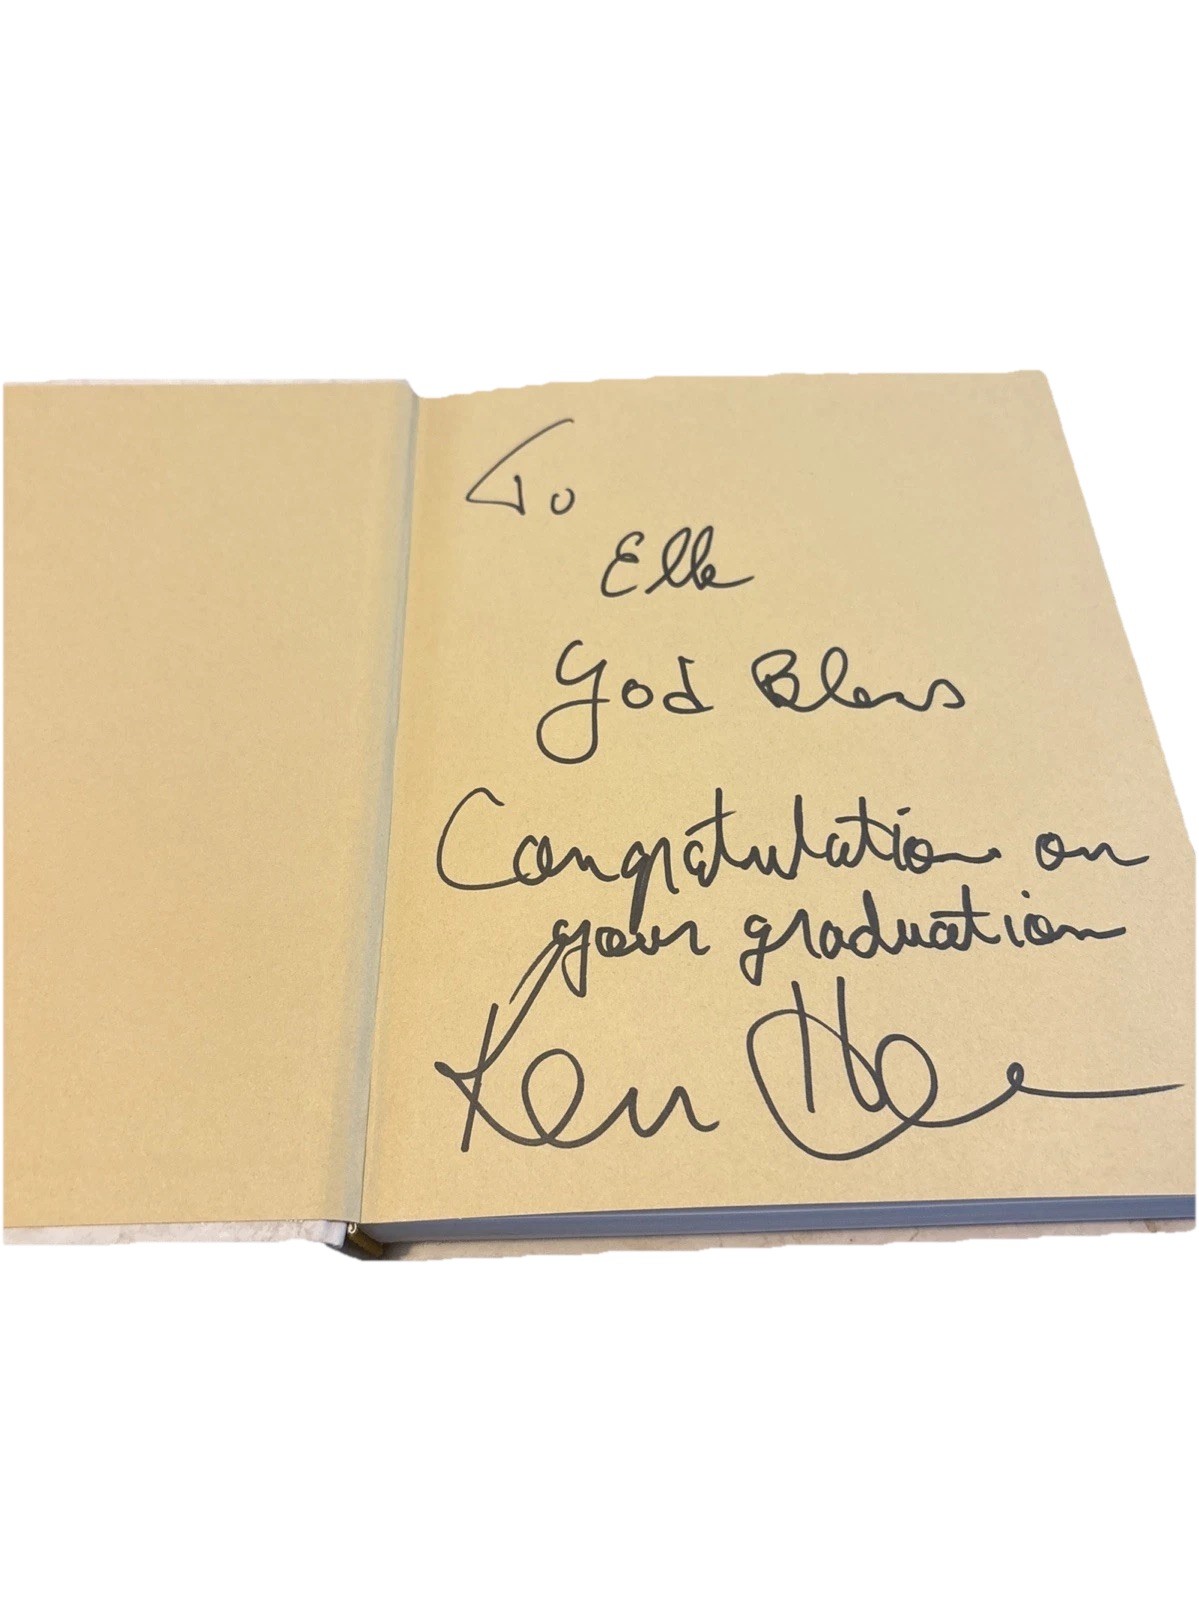 To
Elle
God Bless
Congratulation on
your graduation
Ken